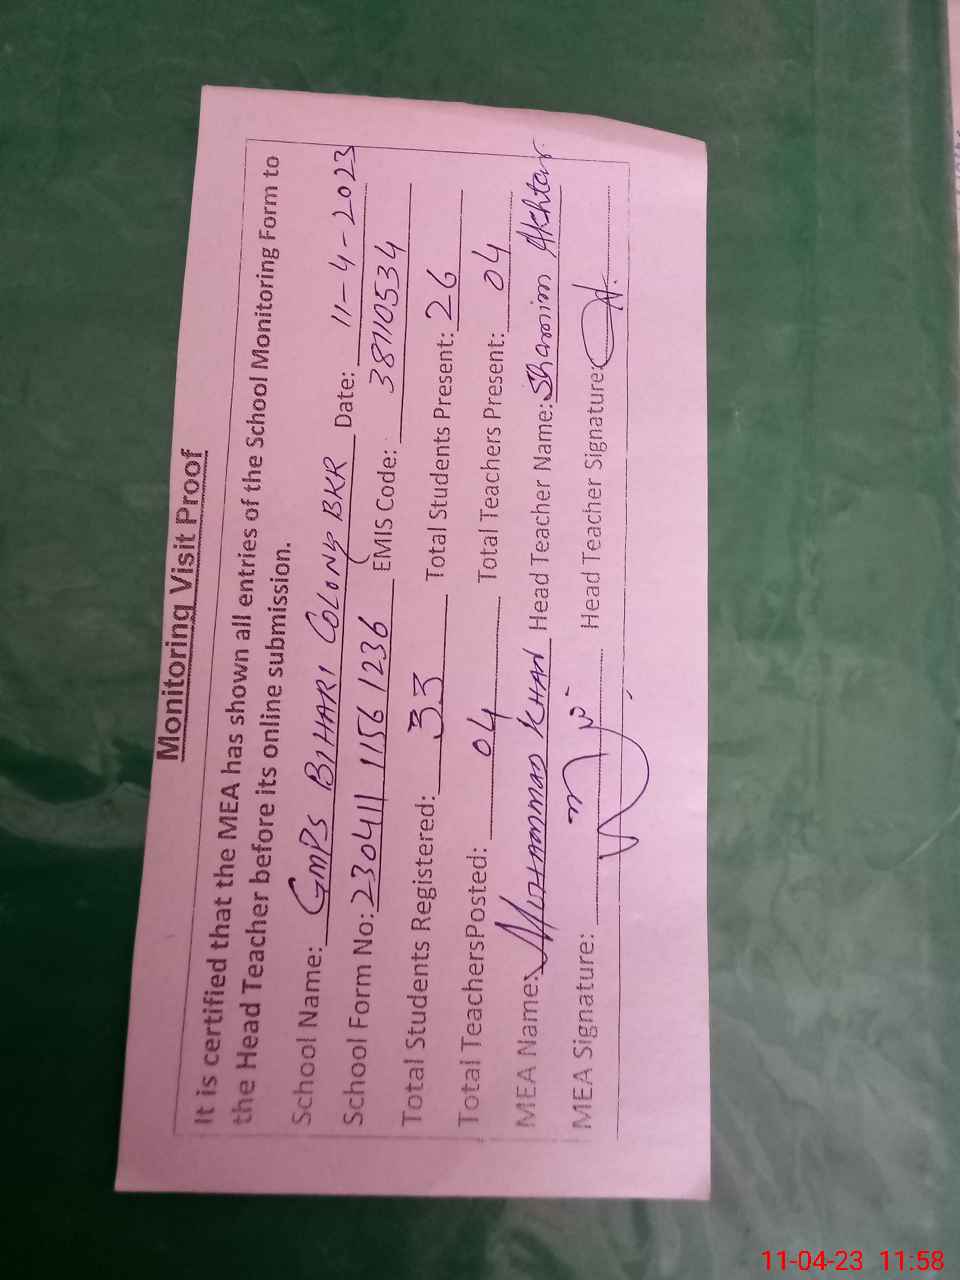 Monitoring Visit Proof
It is certified that the MEA has shown all entries of the School Monitoring Form to
the Head Teacher before its online submission.
School Name: GMPS BIHARI COLONY BKR Date: 11-4-2023
School Form No: 230411 1156 1236 EMIS Code: 38110534
Total Students Registered: 33 Total Students Present: 26
Total TeachersPosted: 04 Total Teachers Present: 04
MEA Name: MUHAMMAD KHAN Head Teacher Name: Shamim Akhtar
MEA Signature: Head Teacher Signature:
11-04-23 11:58